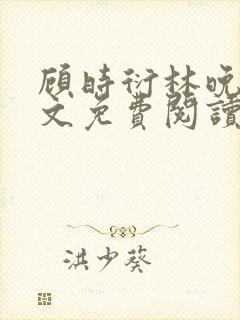 顾時衍林晚
文免費閱讀
洪少葵